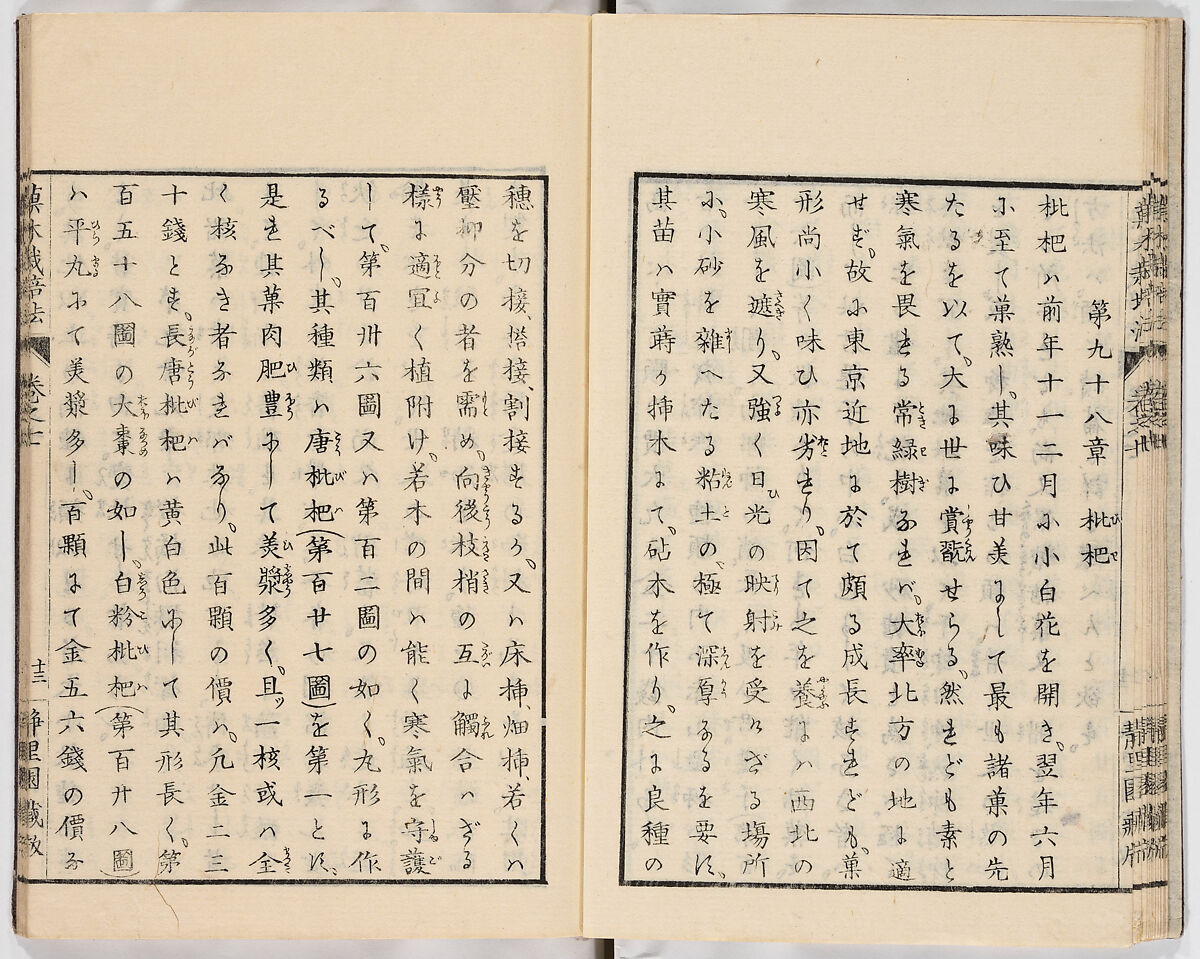 第九十八章 枇杷
枇杷ハ前年十一二月に小白花を開き、翌年六月
に至て菓熟し、其味ひ甘美にして最も諸菓の先
たるを以て、大に世に賞翫せらる、然れども素と
寒氣を畏るる常緑樹なれバ、大率北方の地に適
せず、故に東京近地に於て頗る成長すれども、菓
形尚小く味ひ亦劣れり、因て之を養ふにハ西北の
寒風を遮り、又強く日光の映射を受けざる塲所
に、小砂を雜へたる粘土の、極て深厚なるを要す、
其苗ハ實蒔か揷木にて、砧木を作り、之に良種の
穗を切接、搭接、割接するか、又ハ床揷、畑揷、若くハ
壓柳分の者を需め、向後枝梢の互に觸合ハざる
樣に適宜く植附け、若木の間ハ能く寒氣を守護
して、第百卅六圖又ハ第百二圖の如く、丸形に作
るべし、其種類ハ唐枇杷（第百廿七圖）を第一とす、
是れ其菓肉肥豊にして美漿多く、且ッ一核或ハ全
く核なき者なれバなり、此百顆の價ハ、凡金二三
十錢とす、長唐枇杷ハ黄白色にして其形長く、第
百五十八圖の大棗の如し、白粉枇杷（第百廿八圖）
ハ平丸にて美漿多し、百顆にて金五六錢の價な
菓木栽培法
卷之七
十三
靜里園藏版